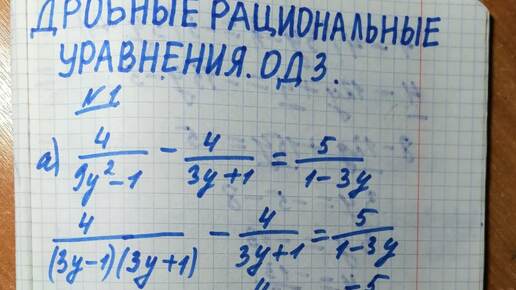 ДРОБНЫЕ РАЦИОНАЛЬНЫЕ
УРАВНЕНИЯ. ОДЗ.
№1
а) 4/(9y²-1) - 4/(3y+1) = 5/(1-3y)
4/((3y-1)(3y+1)) - 4/(3y+1) = 5/(1-3y)
4 -5